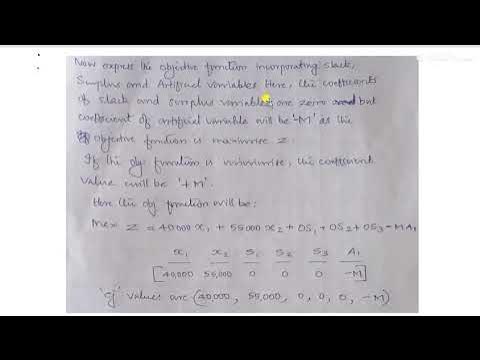 Now express the objective function incorporating slack,
Surplus and Artificial variables. Here, the coefficients
of slack and surplus variables are zero and but
coefficient of artificial variable will be '-M' as the
objective function is maximise Z.
If the obj function is minimise, the coefficient
value will be '+M'.
Here the obj function will be:
Max Z = 40000 x₁ + 55000 x₂ + 0S₁ + 0S₂ + 0S₃ - MA₁
x₁ x₂ S₁ S₂ S₃ A₁
[40,000 55,000 0 0 0 -M]
'cj' values are (40,000, 55,000, 0, 0, 0, -M)